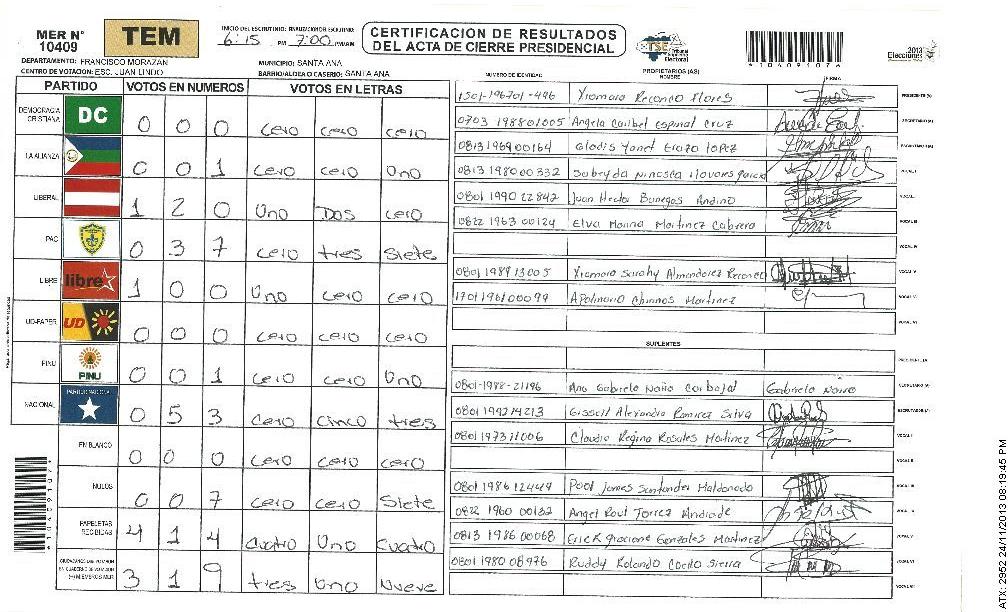 MER N° 10409
TEM
INICIO DEL ESCRUTINIO: FINALIZACION DE ESCUTINIO:
6:15 PM 7:00 PM/AM
CERTIFICACION DE RESULTADOS
DEL ACTA DE CIERRE PRESIDENCIAL
TSE Tribunal Supremo Electoral
2013 Elecciones
DEPARTAMENTO: FRANCISCO MORAZAN
MUNICIPIO: SANTA ANA
CENTRO DE VOTACION: ESC. JUAN LINDO
BARRIO/ALDEA O CASERIO: SANTA ANA
PARTIDO VOTOS EN NUMEROS VOTOS EN LETRAS
DEMOCRACIA CRISTIANA DC 0 0 0 cero cero cero
LA ALIANZA 0 0 1 cero cero Uno
LIBERAL 1 2 0 Uno Dos cero
PAC 0 3 7 cero tres Siete
LIBRE libre 1 0 0 Uno cero cero
UD-FAPER UD 0 0 0 cero cero cero
PINU PINU 0 0 1 cero cero Uno
NACIONAL 0 5 3 cero cinco tres
EN BLANCO 0 0 0 cero cero cero
NULOS 0 0 7 cero cero Siete
PAPELETAS RECIBIDAS 4 1 4 cuatro Uno cuatro
3 1 9 tres Uno Nueve
NUMERO DE IDENTIDAD PROPIETARIOS (AS) NOMBRE FIRMA
1501-196701-496 Xiomara Reconco Flores PRESIDENTE(A)
0703 198801005 Angela Caribel Espinal Cruz SECRETARIO(A)
0813 1969 00164 Glodis Yanet Erazo lopez ESCRUTADOR(A)
0813 1980 00332 Sobeyda Ninosca
0801 1990 22842 Juan Hector Banegas Andino
0822 1963 00124 Elva Marina Martinez Cabrera
0801 1989 13005 Xiomara Sarahy Almendarez Reconco VOCAL V
1701 1961 00099 Apolinario Chinnos Martinez
SUPLENTES
0801-1988-21196 Ana Gabriela Noña Carbajal
0801 1992 14213 Gissell Alexandra Ramirez Silva
0801 1973 11006 Claudia Regina Rosales Martinez
0801 1986 12449 Pool James Santander Maldonado
0822 1960 00132 Angel Raul Torrez Andrade
0813 1986 00068 Erick Gonzales Martinez
0801 1980 08976 Ruddy Rolando Coello Sierra
ATX: 2952 24/11/2013 08:19:45 PM